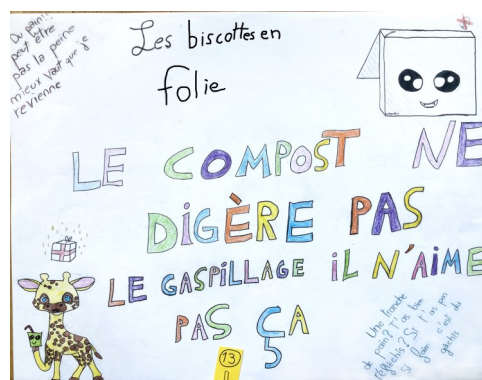 Du pain!!
peut être
pas la peine
mieux vaut que je
revienne
Les biscottes en
folie
LE COMPOST NE
DIGÈRE PAS
LE GASPILLAGE IL N'AIME
PAS ÇA
Une tranche
de pain? T'as bien
réfléchis? Si t'as pas
si faim c'est du
gachis
13